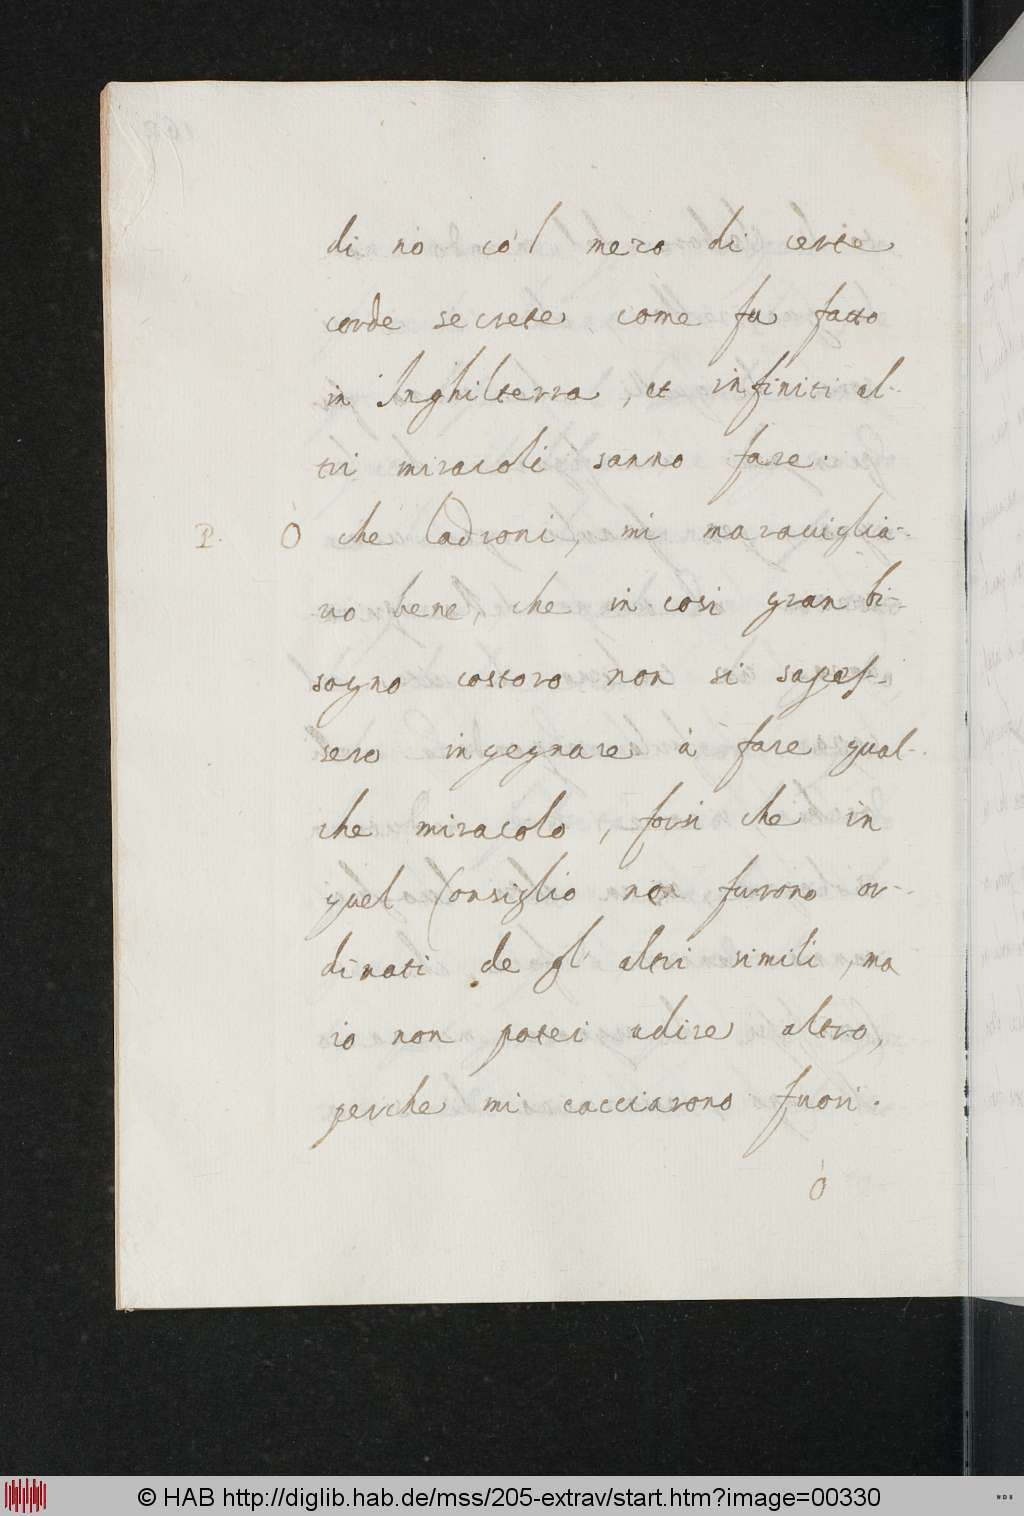 di nò co'l mezo di certe
corde secrete come fu fatto
in Inghilterra, et infiniti al-
tri miracoli sanno fare.
P. Ò che ladroni, mi marauiglia-
uo bene, che in cosi gran bi-
sogno costoro non si sapes-
sero ingegnare à fare qual-
che miracolo, forsi che in
quel Consiglio non furono or-
dinati de gl' altri simili, ma
io non potei udire altro,
perche mi cacciarono fuori.
ò
© HAB http://diglib.hab.de/mss/205-extrav/start.htm?image=00330